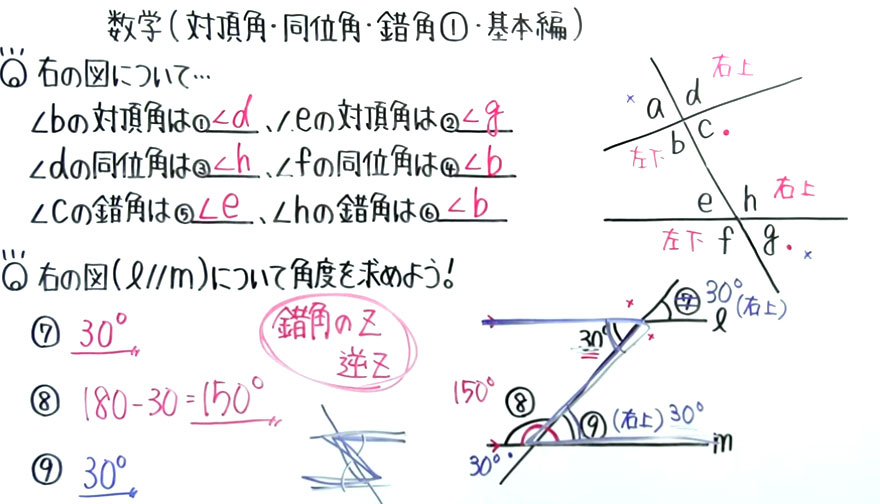 数学(対頂角・同位角・錯角①・基本編)
右の図について…
∠bの対頂角は①∠d、∠eの対頂角は②∠g
∠dの同位角は③∠h、∠fの同位角は④∠b
∠Cの錯角は⑤∠e、∠hの錯角は⑥∠b
右上
a d
b c
左下
e h 右上
左下 f g
右の図(ℓ//m)について角度を求めよう!
⑦ 30°
⑧ 180-30=150°
⑨ 30°
錯角のZ
逆Z
⑦ 30°
(右上)
ℓ
30°
150° ⑧
⑨ (右上) 30°
m
30°